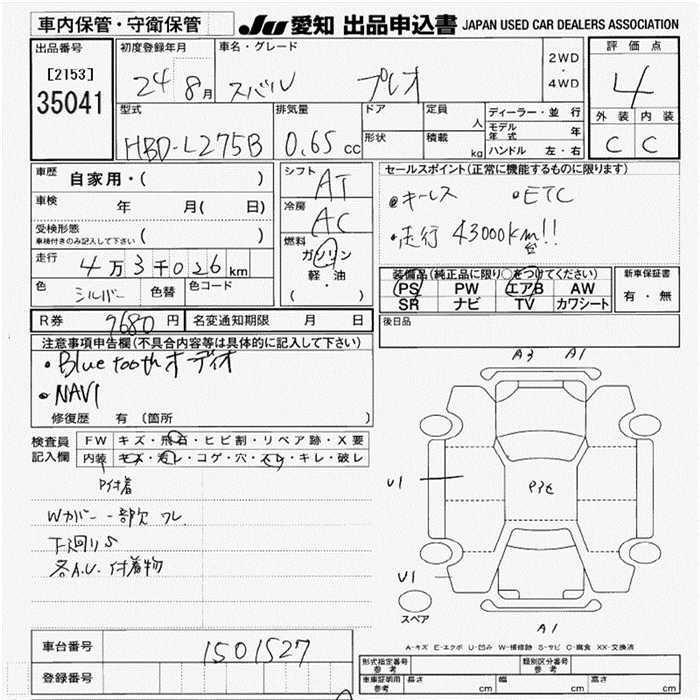 車内保管・守衛保管
JU 愛知 出品申込書 JAPAN USED CAR DEALERS ASSOCIATION
出品番号 初度登録年月 車名・グレード 2WD・4WD 評価点
[2153]
35041
24 8月 スバル プレオ 4
外装 内装
C C
型式 排気量 ドア 定員 人 ディーラー・並行
モデル年式 年
HBD-L275B 0.65 cc 形状 積載 kg ハンドル 左・右
車歴 自家用・( )
シフト AT
セールスポイント(正常に機能するものに限ります)
車検 年 月( 日)
冷房 AC
●キーレス ●ETC
受検形態
車検付きのみ記入して下さい
燃料 ガソリン
軽・油
・( )
●走行 43000km台!!
走行 4万3千026km
装備品(純正品に限り○をつけてください) 新車保証書
色 シルバー 色替 色コード
PS PW エアB AW 有・無
SR ナビ TV カワシート
R券 9680円 名変通知期限 月 日
後日品
注意事項申告欄(不具合内容等は具体的に記入して下さい)
・Bluetoothオーディオ
・NAVI
修復歴 有 (箇所 )
A3 A1
検査員記入欄 FW キズ・飛石・ヒビ割・リペア跡・X要
内装 キズ・汚レ・コゲ・穴・スレ・キレ・破レ
P付着
Wカバー一部欠 ワレ
下廻りS
各A.U. 付着物
U1
U1
スペア
A1
A-キズ E-エクボ U-凹み W-補修跡 S-サビ C-腐食 XX-交換済
車台番号 1501527
登録番号
型式指定番号 参考 類別区分番号 参考
車庫証明用 参考 長さ cm 幅 cm 高さ cm